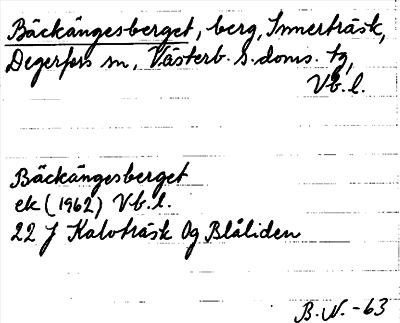 Bäckängesberget, berg, Innerträsk,
Degerfors sn, Västerb. S. doms. tg,
Vb. l.
Bäckängesberget
ek (1962) Vb. l.
22 J Kalvträsk 0g Blåliden
B. N. -63